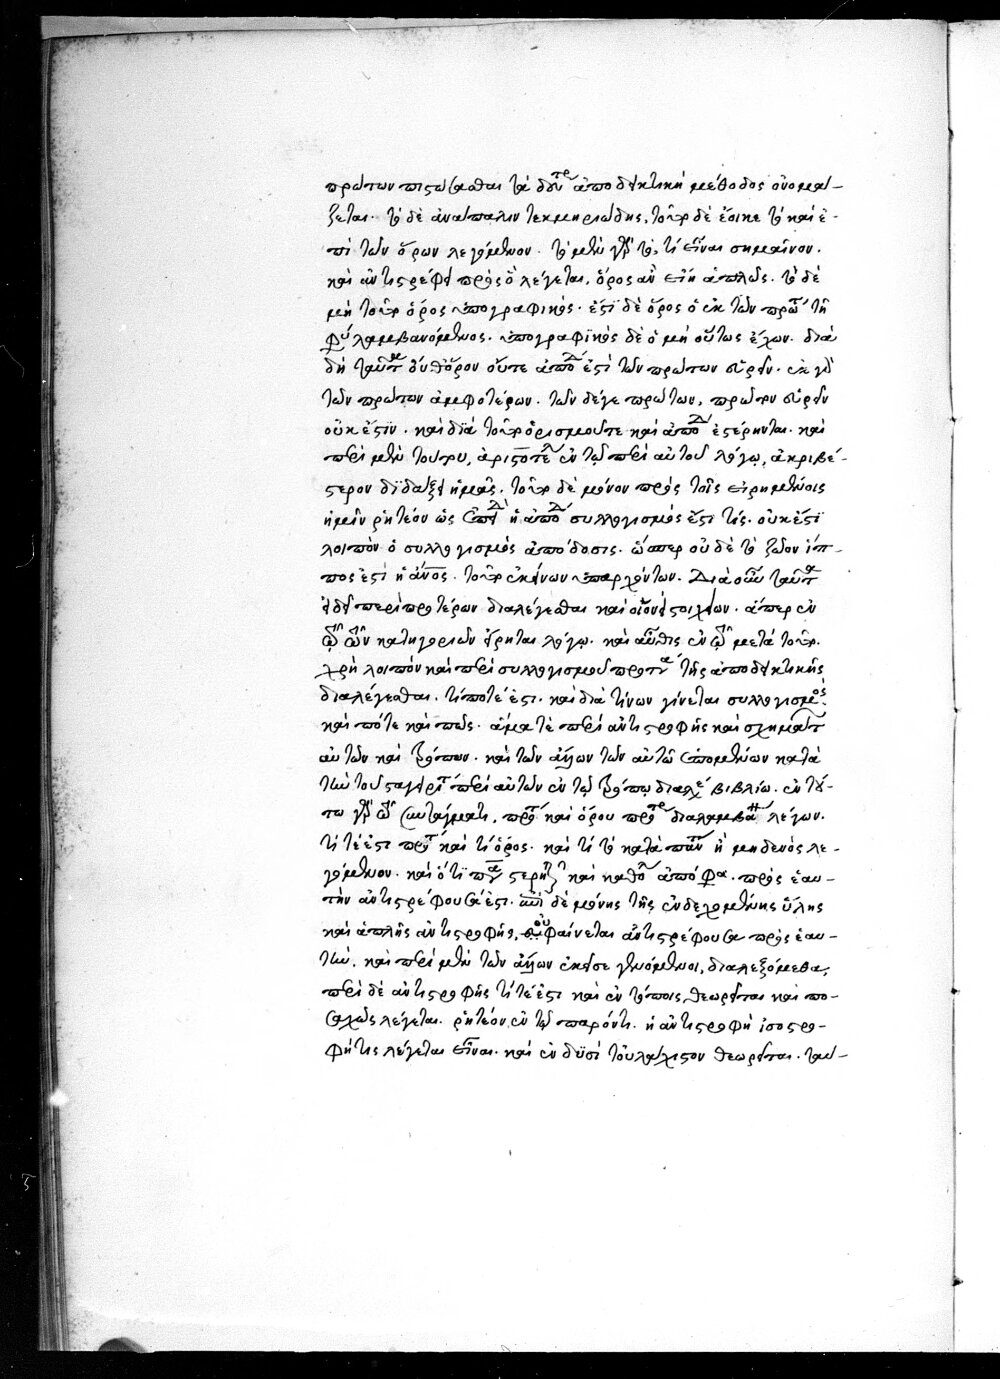 πρώτων πιστώσασθαι τὰ δεύτερα ἀποδεικτικὴ μέθοδος ὀνομά-
ζεται. τὸ δὲ ἀνάπαλιν τεκμηριώδης. τοῦτο δὲ ἔοικε τὸ καὶ ἐ-
πὶ τῶν ὅρων λεγόμενον. τὸ μὲν γὰρ τὸ, τί εἶναι σημαῖνον.
καὶ ἀντιστρέφει πρὸς ὃ λέγεται, ὅρος ἂν εἴη ἁπλῶς. τὸ δὲ
μὴ τοῦτο ὅρος ὑπογραφικός. ἔστι δὲ ὅρος ὁ ἐκ τῶν πρώτων τῇ
φύσει λαμβανόμενος. ὑπογραφικὸς δὲ ὁ μὴ οὕτως ἔχων. διὰ
δὴ ταῦτα οὔθ' ὅρον οὔτε ἀπόδειξιν ἐστὶ τῶν πρώτων εὑρεῖν. ἐκ γὰρ
τῶν πρώτων ἀμφοτέρων. τῶν δέ γε πρώτων, πρῶτον εὑρεῖν
οὐκ ἔστιν. καὶ διὰ τοῦτο ὁρισμοῦ τε καὶ ἀποδείξεως ἐστέρηνται. καὶ
περὶ μὲν τούτου, ἀριστοτέλης ἐν τῷ περὶ αὐτοῦ λόγῳ, ἀκριβέ-
στερον διδάξει ἡμᾶς. τοῦτο δὲ μόνον πρὸς τοῖς εἰρημένοις
ἡμῖν ῥητέον ὡς ἐπειδὴ ἡ ἀπόδειξις συλλογισμός ἐστί τις. οὐκ ἔστι
λοιπὸν ὁ συλλογισμὸς ἀπόδοσις. ὥσπερ οὐδὲ τὸ ζῶον ἵπ-
πος ἐστὶ ἢ ἄνος. τοῦτο ἐκείνων ὑπαρχόντων. Διὰ οὖν ταῦτα
ἔδει περὶ προτέρων διαλέγεσθαι καὶ οἱονεὶ στοιχείων. ἅπερ ἐν
τῷ τῶν κατηγοριῶν εἴρηται λόγῳ. καὶ αὖθις ἐν τῷ μετὰ τοῦτο.
χρὴ λοιπὸν καὶ περὶ συλλογισμοῦ πρότερα τῆς ἀποδεικτικῆς
διαλέγεσθαι. τί ποτέ ἐστι. καὶ διὰ τίνων γίνεται συλλογισμός.
καὶ πότε καὶ πῶς. ἅμα τὲ περὶ ἀντιστροφῆς καὶ σχημάτων
αὐτῶν καὶ τρόπων. καὶ τῶν ἄλλων τῶν αὐτῷ ἑπομένων κατὰ
τὴν τοῦ σταγειρίτου περὶ αὐτῶν ἐν τῷ τρόπῳ διαλέξει βιβλίῳ. ἐν τού-
τῳ γὰρ τῷ συντάγματι, προτάσεως καὶ ὅρου πρότερον διαλαμβάνει λέγων.
τί τέ ἐστι πρότασις καὶ τί ὅρος. καὶ τί τὸ κατὰ παντὸς ἢ μηδενὸς λε-
γόμενον. καὶ ὅτι πᾶσα στερητικὴ καὶ καθόλου ἀπόφασις. πρὸς ἑαυ-
τὴν ἀντιστρέφουσά ἐστι. ἐπὶ δὲ μόνης τῆς ἐνδεχομένης ὕλης
καὶ ἁπλῆς ἀντιστροφῆς, οὐ φαίνεται ἀντιστρέφουσα πρὸς ἑαυ-
τήν. καὶ περὶ μὲν τῶν ἄλλων ἐκεῖσε γενόμενοι, διαλεξόμεθα.
περὶ δὲ ἀντιστροφῆς τί τέ ἐστι καὶ ἐν τόποις θεωρεῖται καὶ πο-
σαχῶς λέγεται. ῥητέον ἐν τῷ παρόντι. ἡ ἀντιστροφὴ ἰσοστρο-
φή τις λέγεται εἶναι. καὶ ἐν δυσὶ τοὐλάχιστον θεωρεῖται. ταύ-